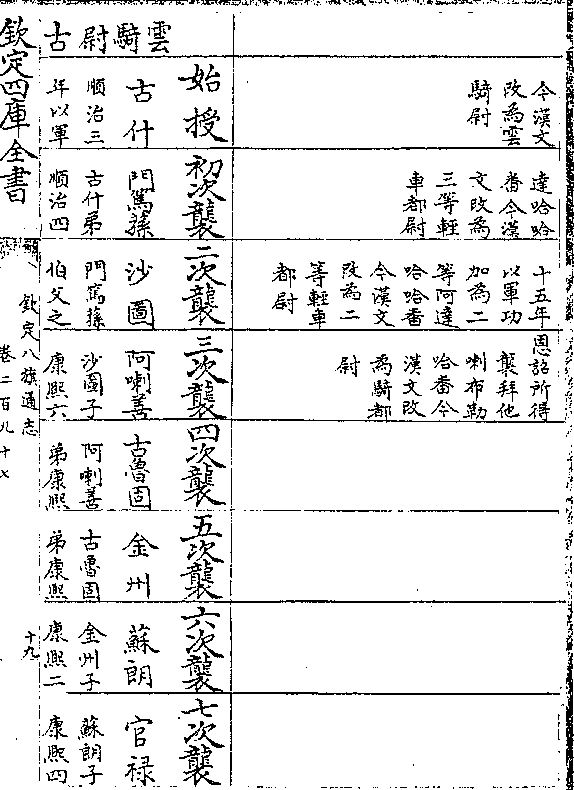 今漢文
改為雲
騎尉
達哈哈
番今漢
文改為
三等輕
車都尉
十五年
以軍功
加為二
等阿達
哈哈番
今漢文
改為二
等輕車
都尉
恩詔所得
襲拜他
喇布勒
哈番今
漢文改
為騎都
尉
雲騎尉古
始授
古什
順治三
年以軍
初次襲
門篤孫
古什弟
順治四
二次襲
沙圖
門篤孫
伯父之
三次襲
阿喇善
沙圖子
康熙六
四次襲
古魯固
阿喇善
弟康熙
五次襲
金州
古魯固
弟康熙
六次襲
蘇朗
金州子
康熙二
七次襲
官祿
蘇朗子
康熙四
欽定四庫全書
欽定八旗通志
卷二百九十七
十九